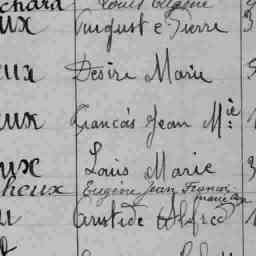 chard Louis Eugène
ux August e Pierre 3
eux Désiré Marie 5
eux Francois Jean Mie 1
ux Louis Marie 3
heux Eugène Jean Francoi
u Aristide Alfred 1